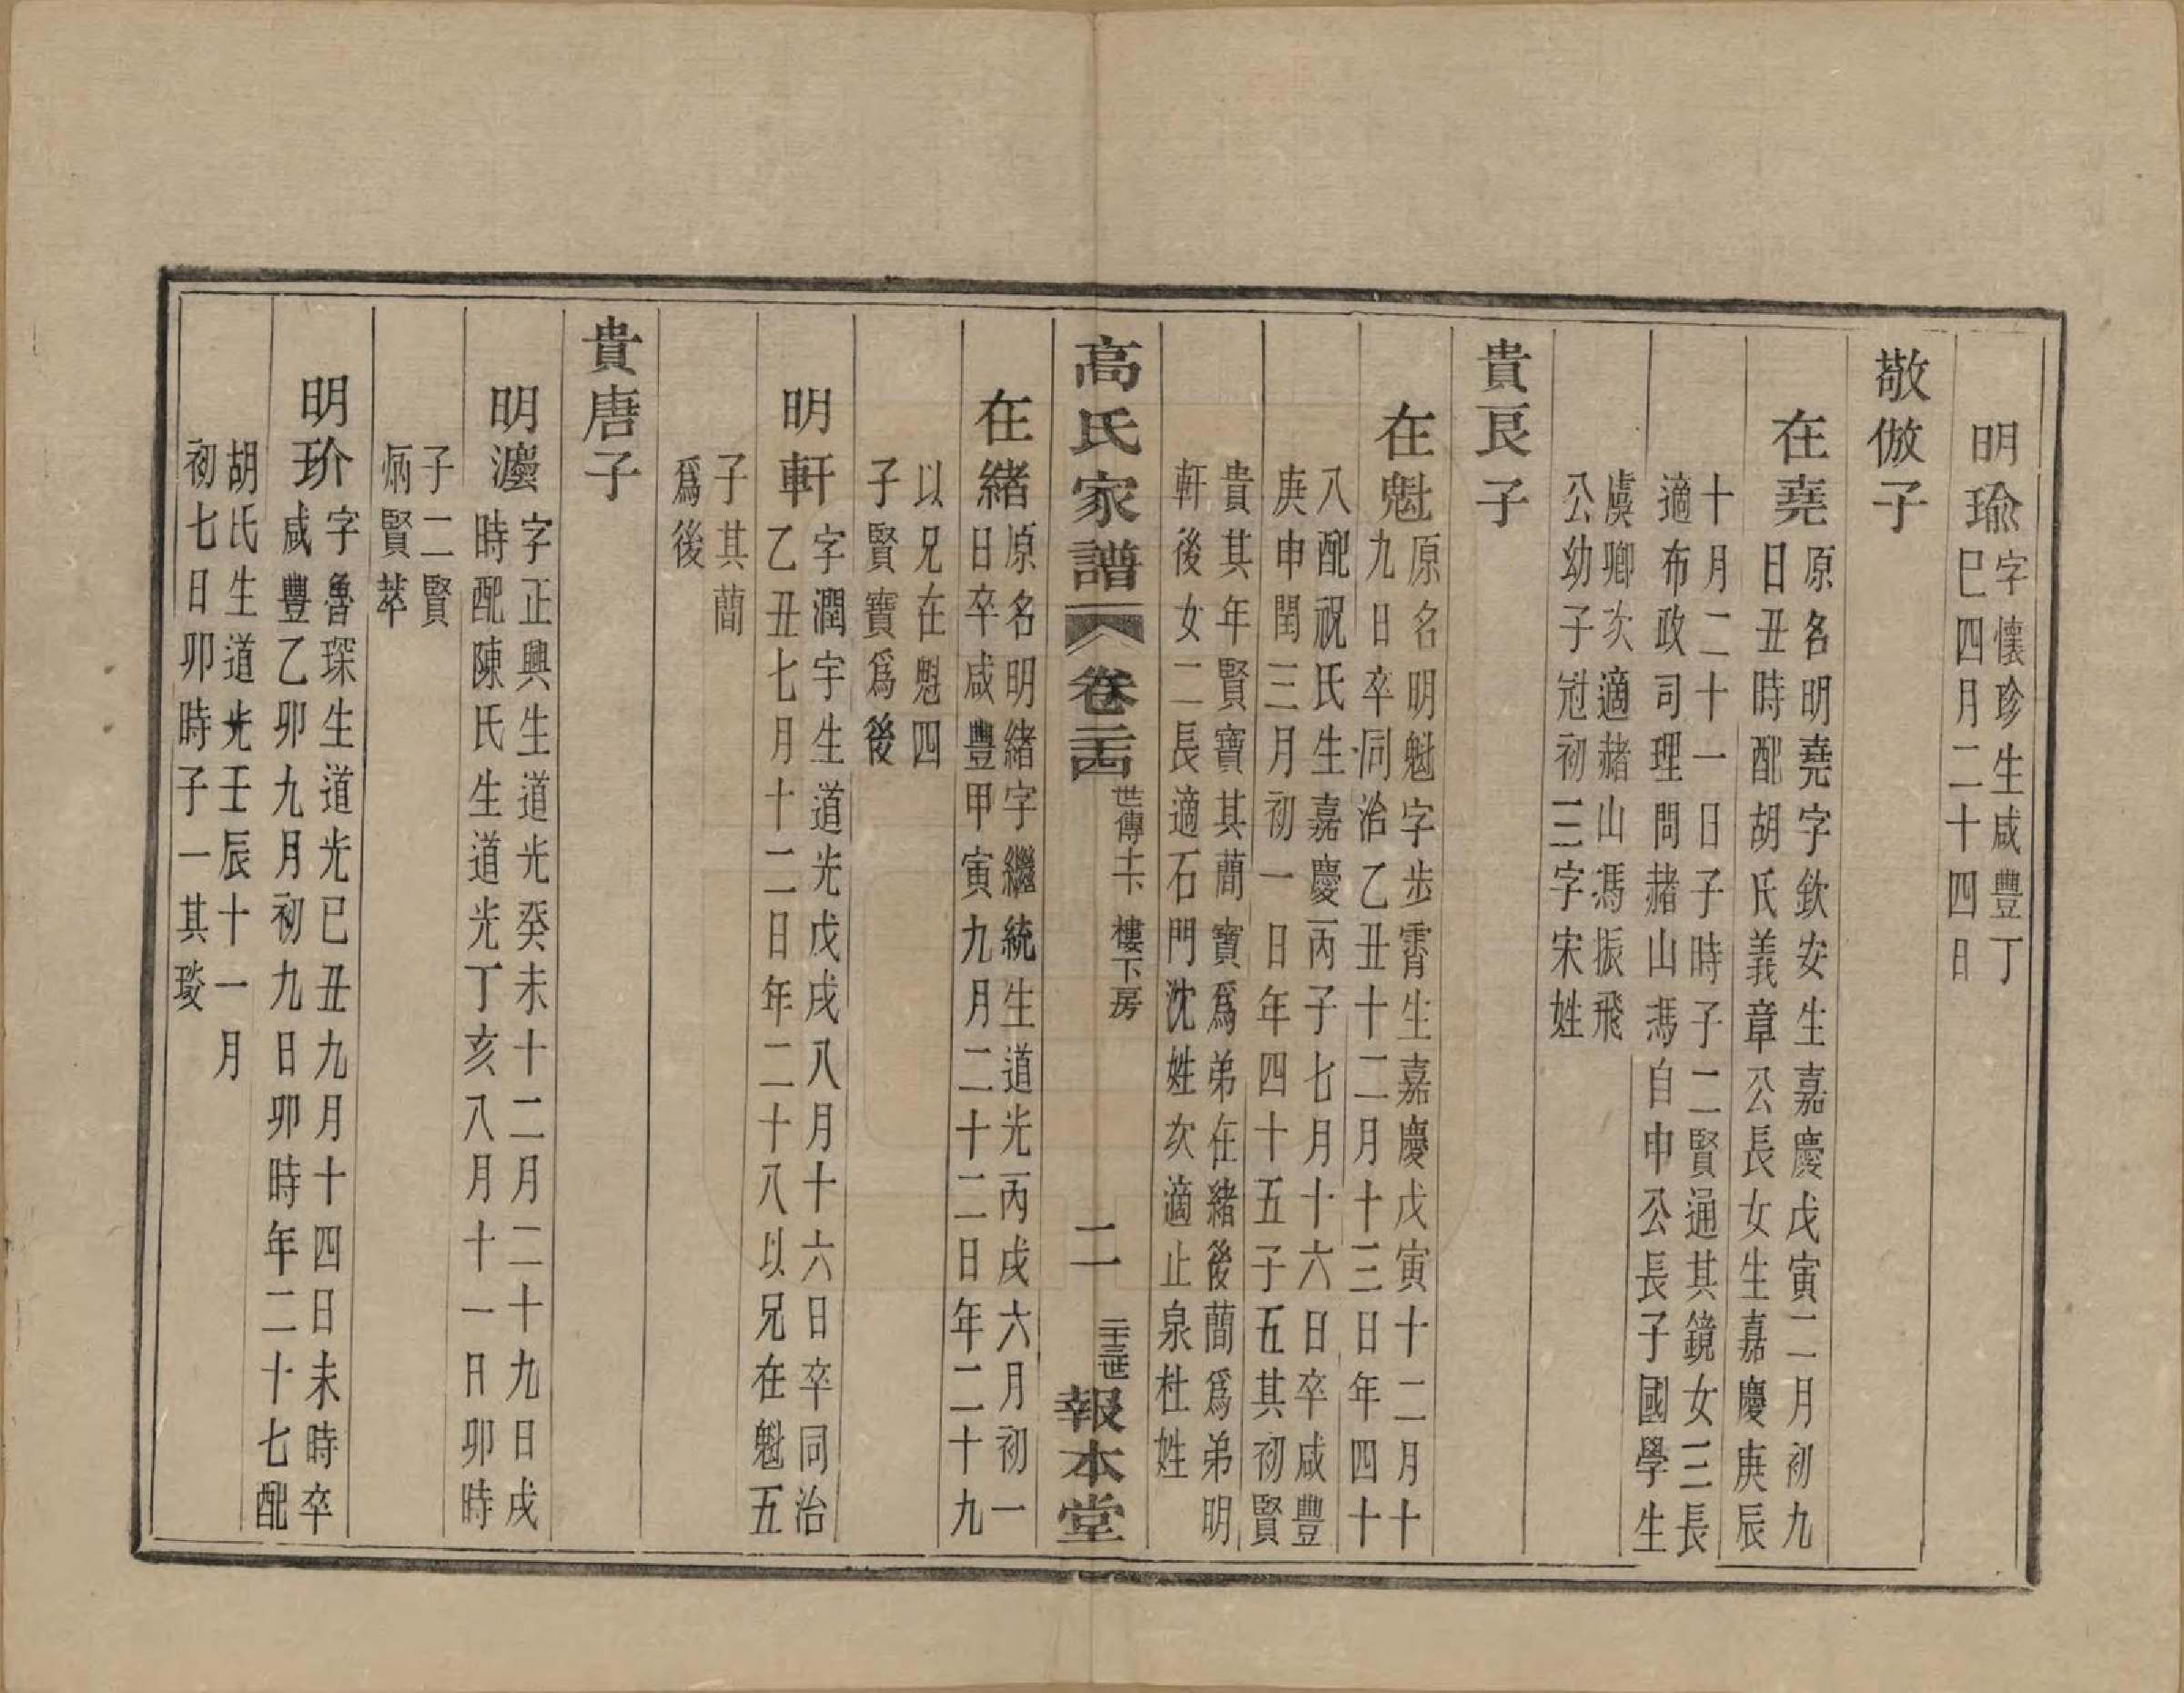 明瑜字懷珍生咸豐丁
巳四月二十四日
敬倣子
在堯原名明堯字欽安生嘉慶戊寅二月初九
日丑時配胡氏義章公長女生嘉慶庚辰
十月二十一日子時子二賢通其鏡女三長
適布政司理問赭山馮自申公長子國學生
虞卿次適赭山馮振飛
公幼子冠初三字宋姓
貴良子
在魁原名明魁字步霄生嘉慶戊寅十二月十
九日卒同治乙丑十二月十三日年四十
八配祝氏生嘉慶丙子七月十六日卒咸豐
庚申閏三月初一日年四十五子五其初賢
貴其年賢寶其蕳寶爲弟在緒後蕳爲弟明
軒後女二長適石門沈姓次適止泉杜姓
高氏家譜
卷二十四
世傳十下
樓下房
二
二十三世
報本堂
在緒原名明緒字繼統生道光丙戌六月初一
日卒咸豐甲寅九月二十二日年二十九
以兄在魁四
子賢寶爲後
明軒字潤宇生道光戊戌八月十六日卒同治
乙丑七月十二日年二十八以兄在魁五
子其蕳
爲後
貴唐子
明瀍字正興生道光癸未十二月二十九日戌
時配陳氏生道光丁亥八月十一日卯時
子二賢
炳賢萃
明玠字魯琛生道光已丑九月十四日未時卒
咸豐乙卯九月初九日卯時年二十七配
胡氏生道光壬辰十一月
初七日卯時子一其琰